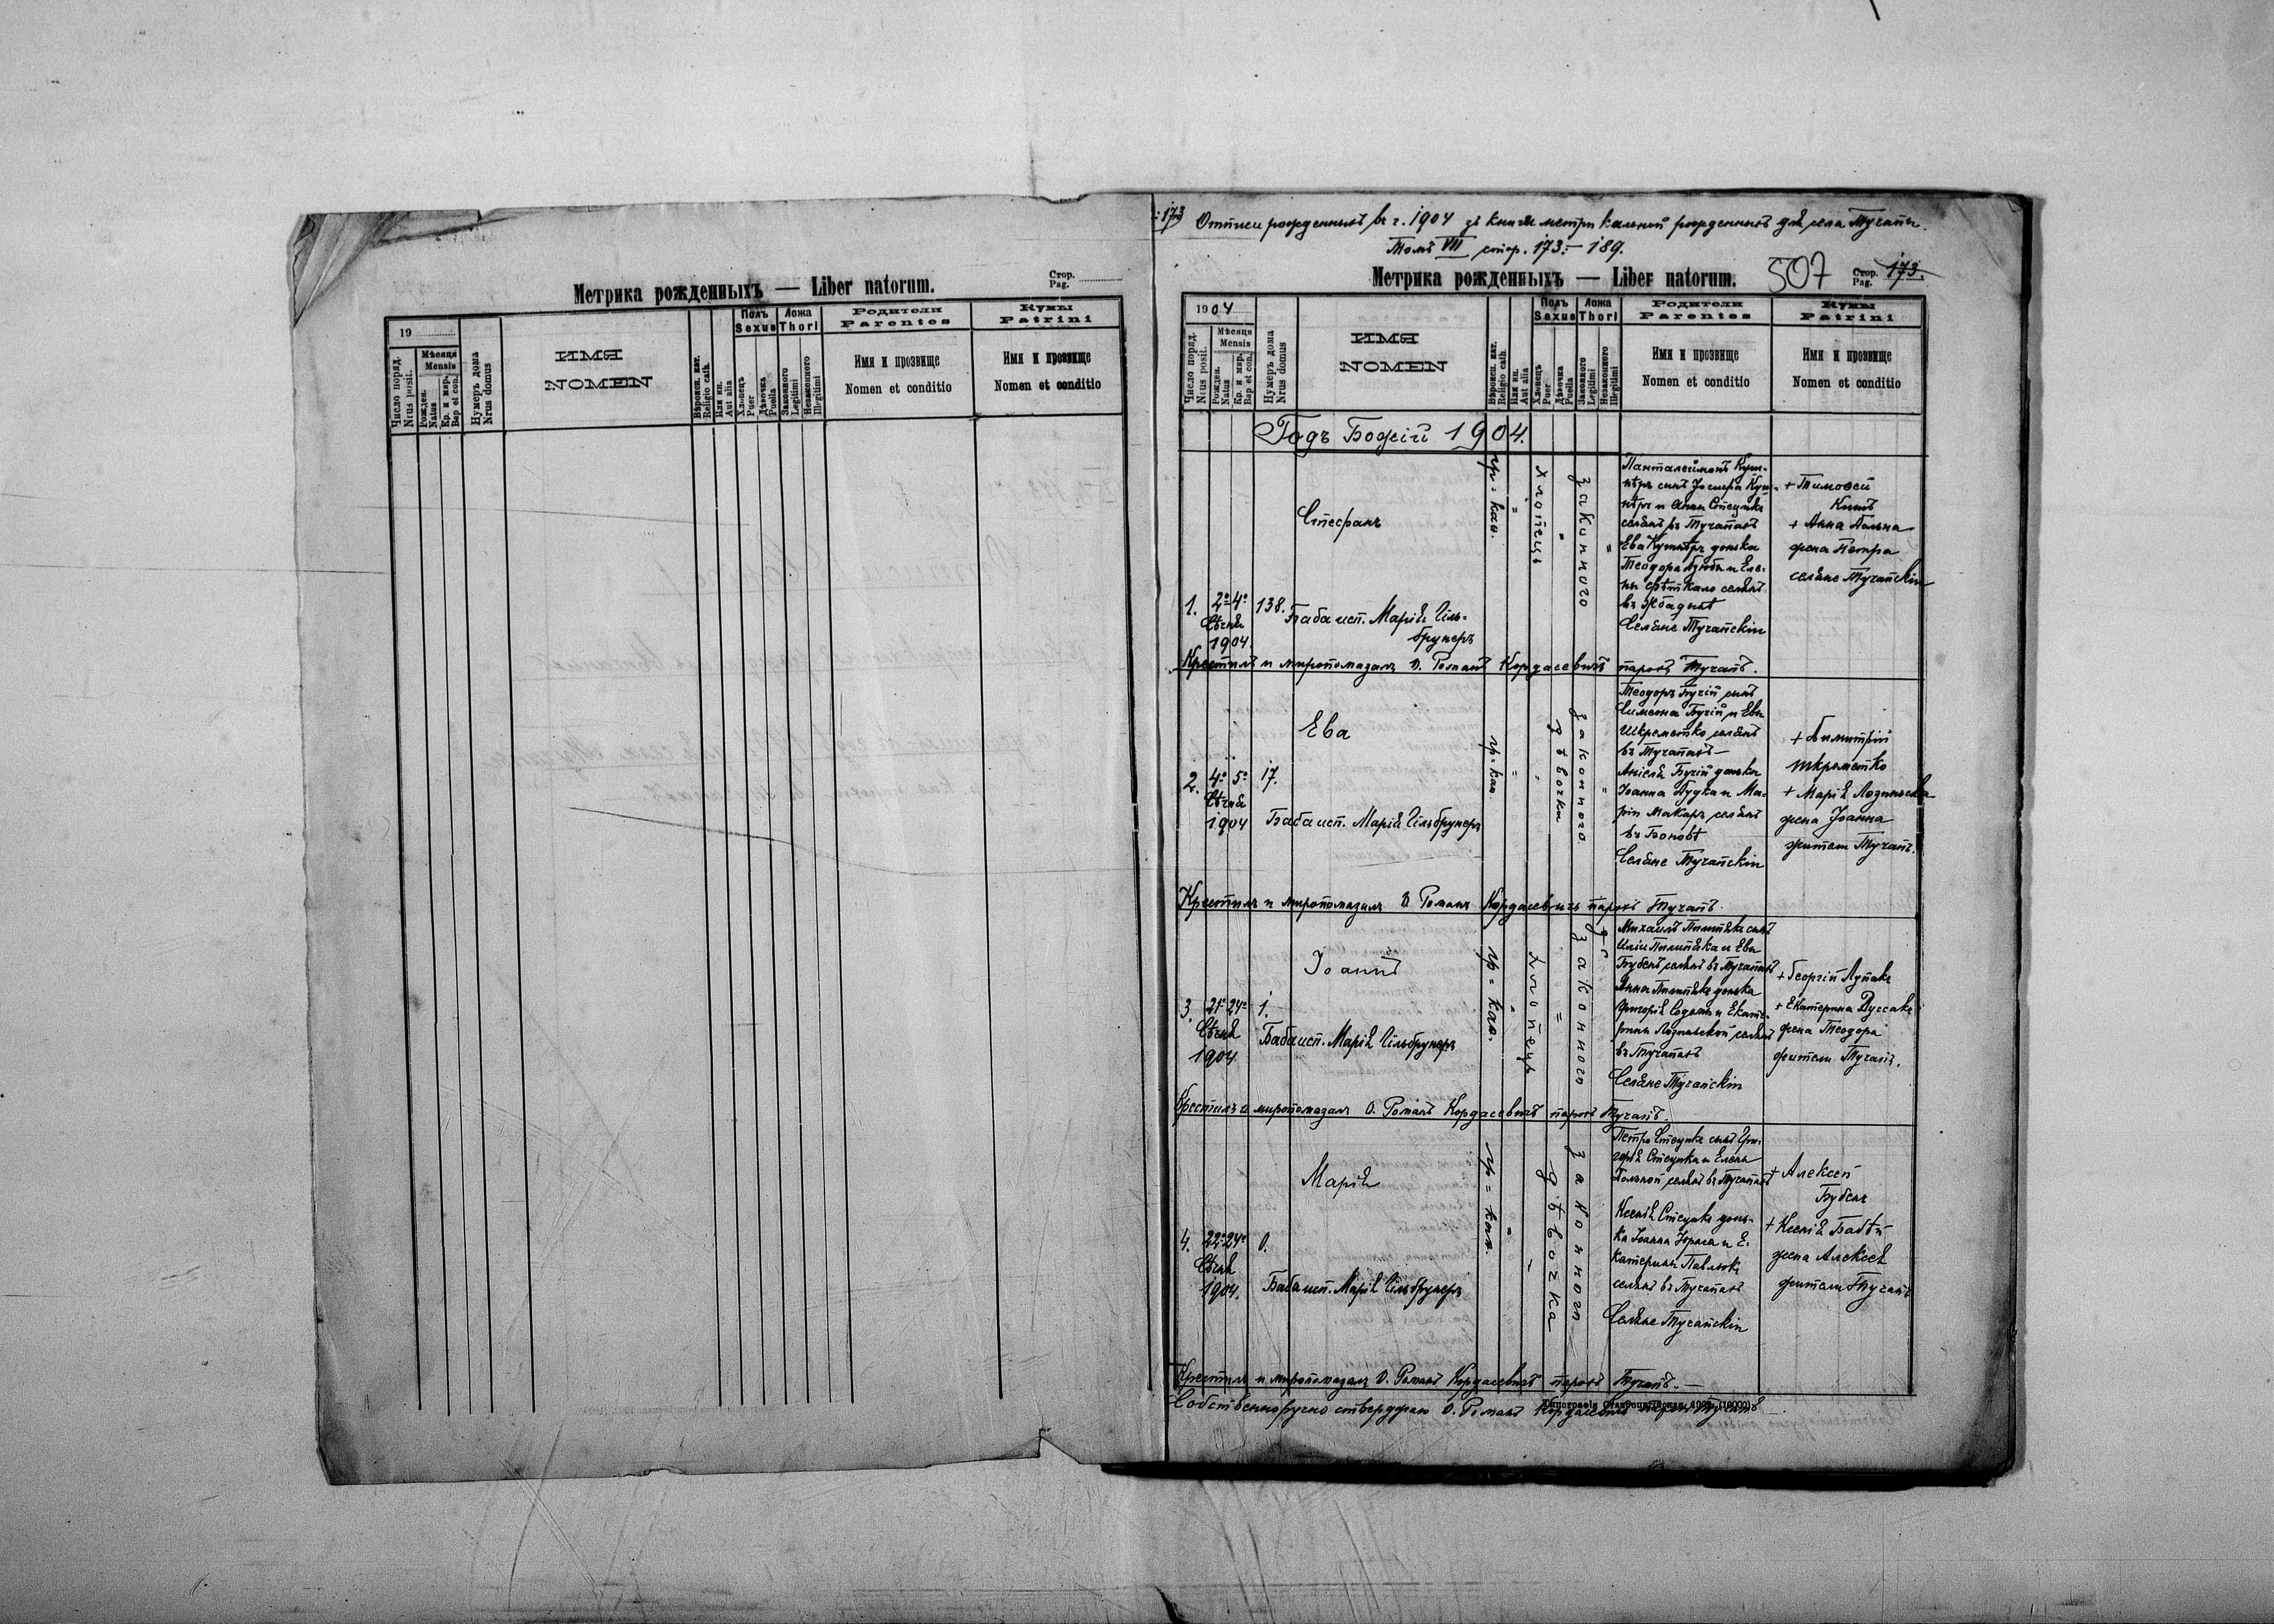 Метрика рожденныхъ — Liber natorum.
Стор.
Pag.
19
Число поряд.
Nrus posit.
Мѣсяця
Mensis
Рожден.
Natus
Кр. и мѵр.
Bap et con.
Нумеръ дома
Nrus domus
ИМЯ
NOMEN
Вѣроисп. кат.
Religio cath.
Или ин.
Aut alia
Полъ
Sexus
Хлопецъ
Puer
Дѣвочка
Puella
Ложа
Thori
Законного
Legitimi
Незаконного
Illegitimi
Родители
Parentes
Имя и прозвище
Nomen et conditio
Кумы
Patrini
Имя и прозвище
Nomen et conditio
173
Отписи рожденныхъ въ г. 1904 зъ книги метрикальной рожденныхъ для села Тучапы.
Томъ VII стор. 173.–189.
Метрика рожденныхъ — Liber natorum.
507
Стор.
Pag.
173.
1904
Число поряд.
Nrus posit.
Мѣсяця
Mensis
Рожден.
Natus
Кр. и мѵр.
Bap et con.
Нумеръ дома
Nrus domus
ИМЯ
NOMEN
Вѣроисп. кат.
Religio cath.
Или ин.
Aut alia
Полъ
Sexus
Хлопецъ
Puer
Дѣвочка
Puella
Ложа
Thori
Законного
Legitimi
Незаконного
Illegitimi
Родители
Parentes
Имя и прозвище
Nomen et conditio
Кумы
Patrini
Имя и прозвище
Nomen et conditio
Годъ Божій 1904.
1.
2º 4º
Сѣчня
1904
138.
Стефанъ
Баба исп. Марія Гіль-
брунеръ
гр=каѳ.
хлопецъ
законного
Панталеймонъ
сынъ Іосифа
и Анны Стецика
селянъ въ Тучапахъ
Ева донька
Теодора и Еле-
ны селянъ
въ
Селяне Тучапскіи
+ Тимоѳей
Кить
+ Анна Польна
жена Петра
селяне Тучапскіи
Крестилъ и миропомазалъ О. Романъ Кордасевичъ парохъ Тучапъ.
2.
4º 5º
Сѣчня
1904
17.
Ева
Баба исп. Марія Гільбрунеръ
гр=каѳ.
дѣвочка
законного.
Теодоръ Бучій сынъ
Симеона Бучій и Евы
Шкреметко селянъ
въ Тучапахъ —
Анеля Бучій донька
Іоанна Дудка и Ма-
ріи Макаръ селянъ
въ
Селяне Тучапскіи
+ Димитрій
Шкреметко
+ Марія Лозинська
жена Іоанна
жители Тучапъ.
Крестилъ и миропомазалъ О. Романъ Кордасевичъ парохъ Тучапъ.
3.
21º 24º
Сѣчня
1904
1.
Іоаннъ
Баба исп. Марія Гільбрунеръ
гр=каѳ.
хлопецъ
законного
Михаилъ сынъ
Иліи и Евы
Бубенъ селянъ въ Тучапахъ
Анна донька
Григорія и Екате-
рины Лозинськой селянъ
въ Тучапахъ
Селяне Тучапскіи
+ Георгій Лупакъ
+ Екатерина Дуссакъ
жена Теодора
жители Тучапъ.
Крестилъ и миропомазалъ О. Романъ Кордасевичъ парохъ Тучапъ.
4.
22º 24º
Сѣчня
1904.
0.
Марія
Баба исп. Марія Гільбрунеръ
гр=каѳ.
дѣвочка
законного
Петро Стецика сынъ Гри-
горія Стецика и Елены
Польной селянъ въ Тучапахъ
Ксенія Стецика донь-
ка Іоанна и Е-
катерины Павлюкъ
селянъ въ Тучапахъ
Селяне Тучапскіи
+ Алексей
Бубенъ
+ Ксенія Бабѣй
жена Алексея
жители Тучапъ
Крестилъ и миропомазалъ О. Романъ Кордасевичъ парохъ Тучапъ. —
Собственноручно стверджаю О. Романъ Кордасевичъ парохъ Тучапъ